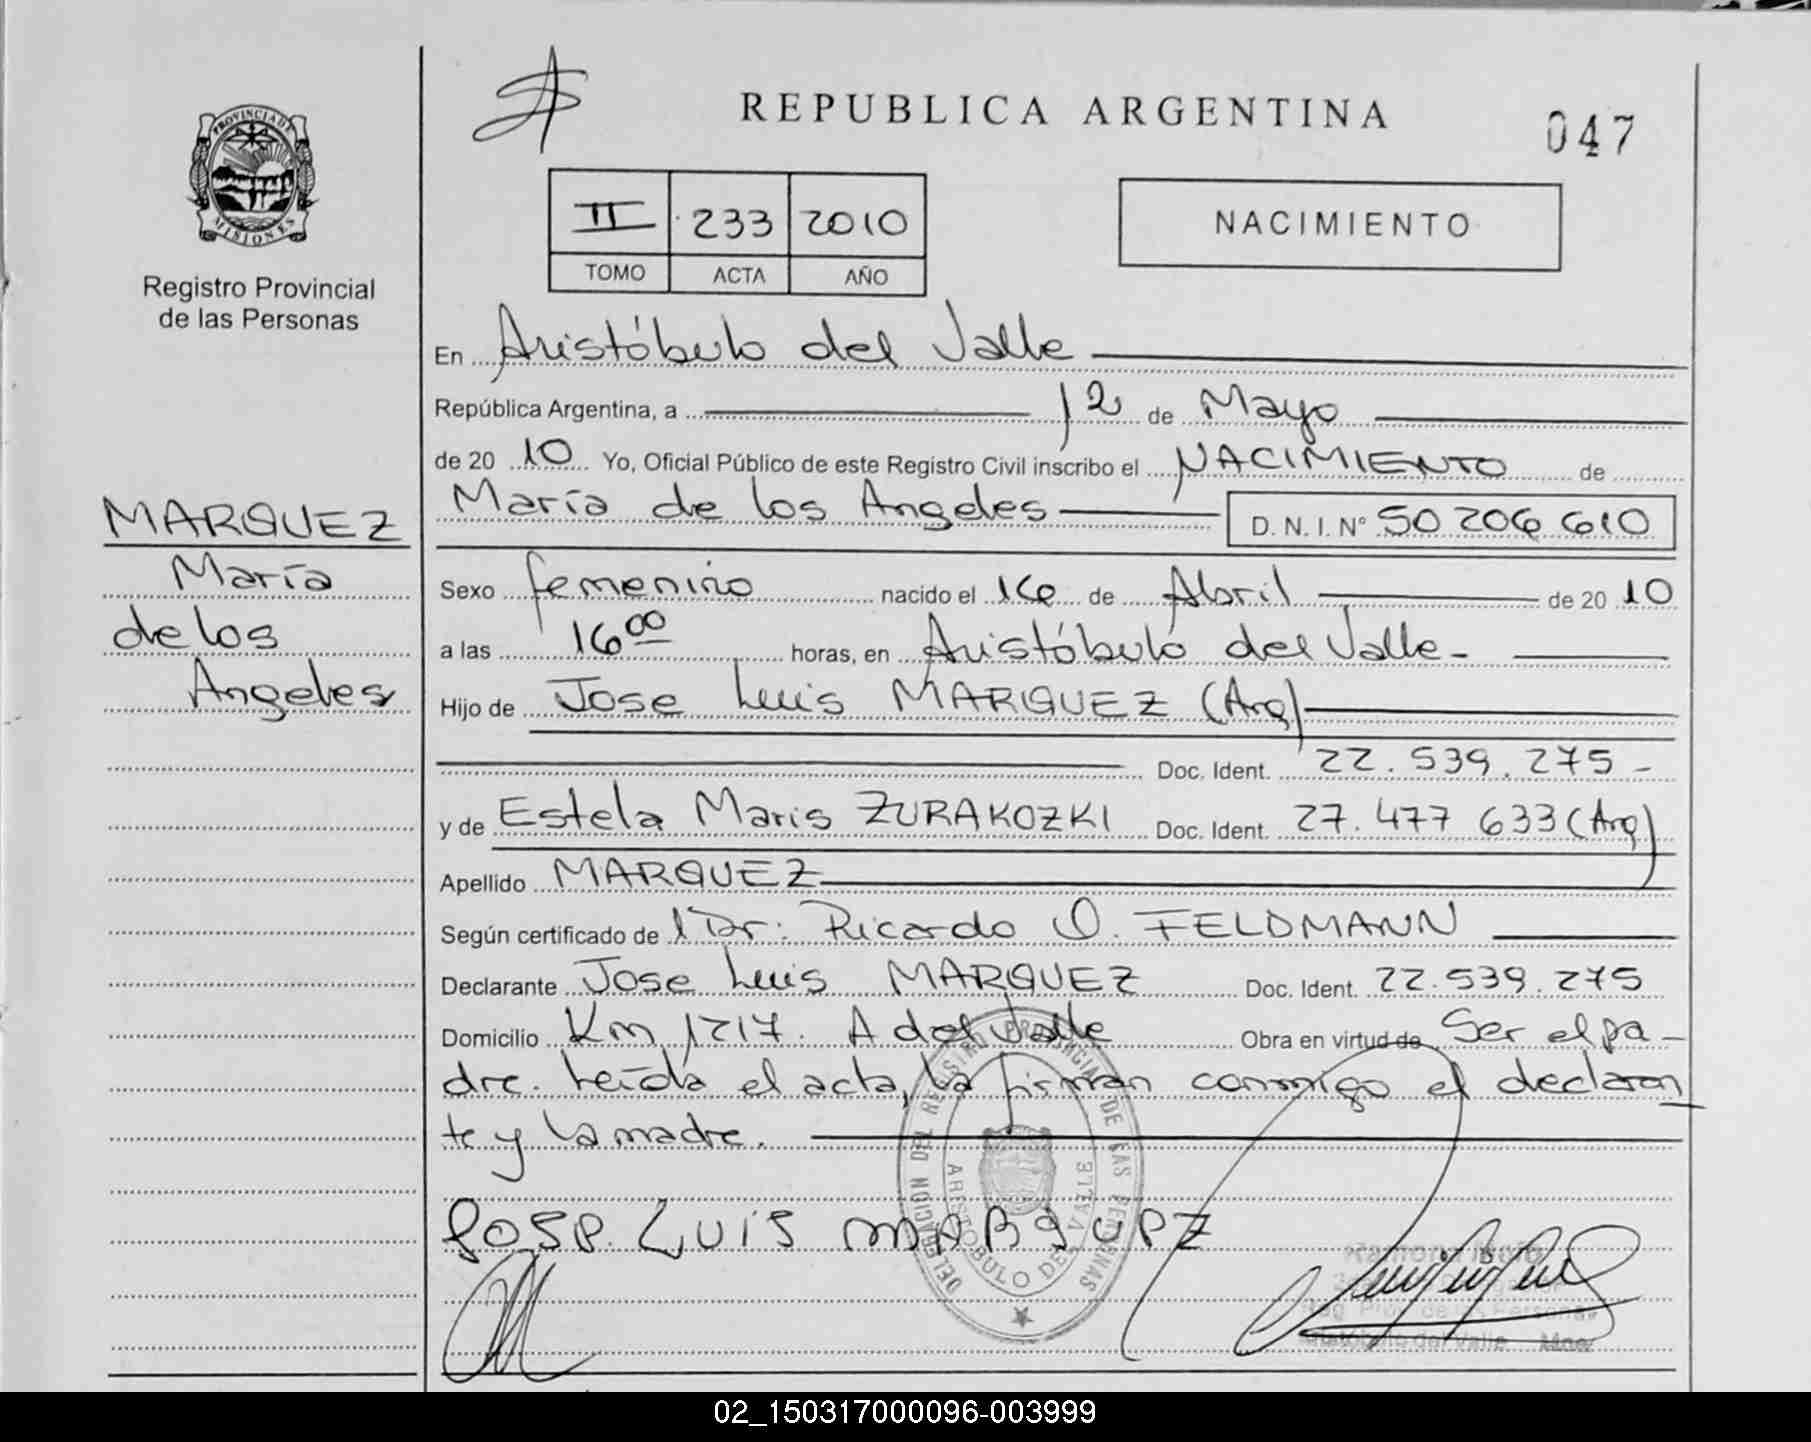 REPUBLICA ARGENTINA
047
PROVINCIA DE MISIONES
Registro Provincial
de las Personas
II 233 2010
TOMO ACTA AÑO
NACIMIENTO
En Aristóbulo del Valle
República Argentina, a 12 de Mayo
de 20 10 Yo, Oficial Público de este Registro Civil inscribo el NACIMIENTO de
María de los Angeles D.N.I. N° 50 206 610
MARQUEZ
María
de los
Angeles
Sexo femenino nacido el 16 de Abril de 20 10
a las 16 00 horas, en Aristóbulo del Valle-
Hijo de Jose Luis MARQUEZ (Arg)
Doc. Ident. 22.539.275-
y de Estela Maris ZURAKOZKI Doc. Ident. 27.477 633 (Arg)
Apellido MARQUEZ
Según certificado de l Dr: Ricardo O. FELDMANN
Declarante Jose Luis MARQUEZ Doc. Ident. 22.539.275
Domicilio Km 1217. A del Valle Obra en virtud de Ser el pa-
dre. Leída el acta, la firman conmigo el declaran
te y la madre.
DELEGACION DEL REGISTRO PROVINCIAL DE LAS PERSONAS
ARISTOBULO DEL VALLE
JOSE LUIS MARQUEZ
Reg. Prov. de las Personas
Aristóbulo del Valle Mnes
02_150317000096-003999